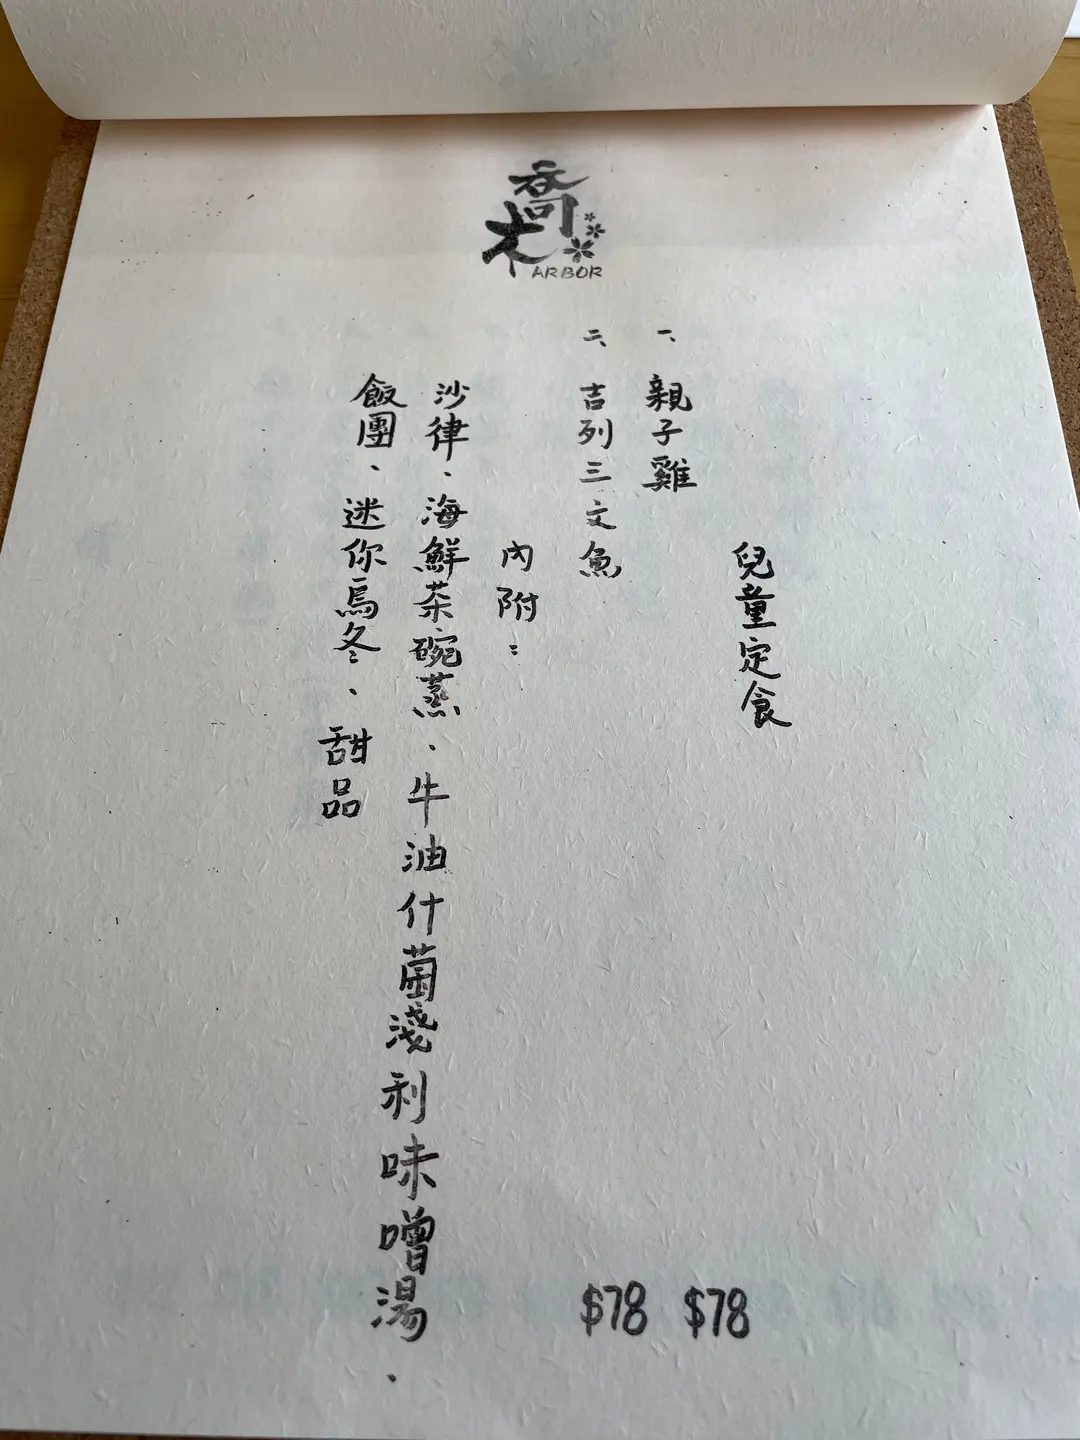 喬木
ARBOR
兒童定食
一、親子雞 $78
二、吉列三文魚 $78
內附：
沙律、海鮮茶碗蒸、牛油什菌淺利味噌湯、
飯團、迷你烏冬、甜品